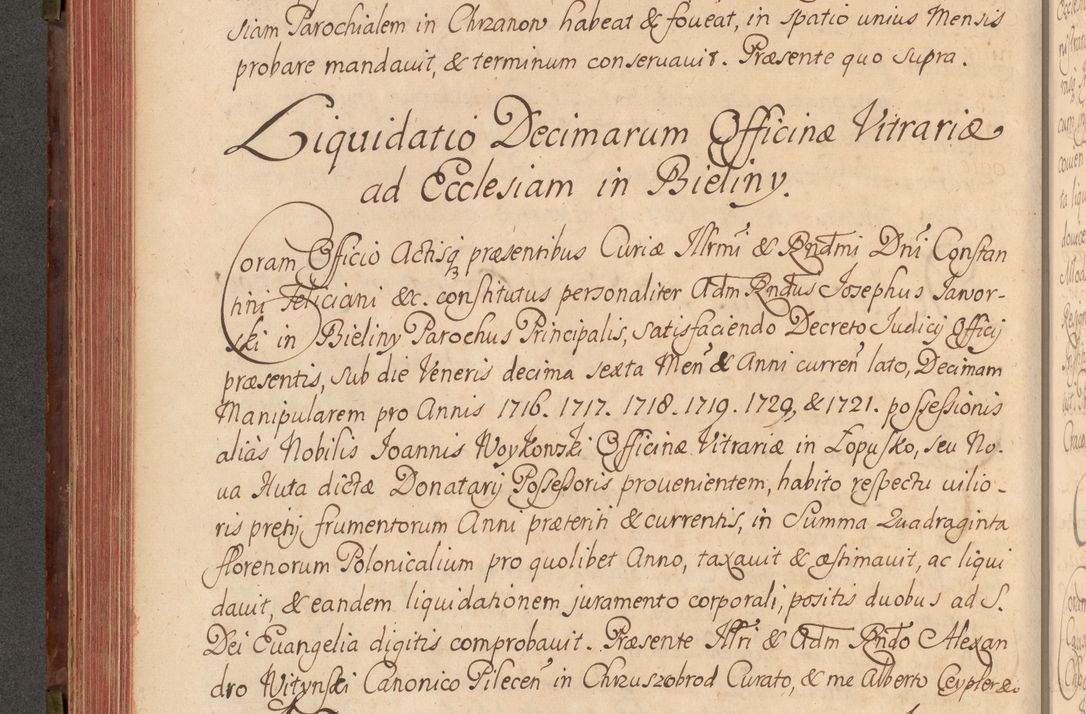 siam Parochialem in Chrzanow habeat & foveat, in spatio unius Mensis
probare mandavit, & terminum conservavit. Præsente quo supra.
Liquidatio Decimarum Officinæ Vitrariæ
ad Ecclesiam in Bieliny.
Coram Officio Actisq præsentibus Curiæ Illrmi & Rndmi Dni Constan
tini Feliciani &c. constitutus personaliter Adm Rndus Josephus Jawor-
ski in Bieliny Parochus Principalis, satisfaciendo Decreto Judicij Officij
præsentis, sub die Veneris decima sexta Men & Anni curren lato, Decimam
Manipularem pro Annis 1716. 1717. 1718. 1719. 1729, & 1721. possessionis
aliàs Nobilis Joannis Woykowzki Officinæ Vitrariæ in Łopusko, seu No-
ua Huta dictæ Donatarij Possessoris prouenientem, habito respectu uilio-
ris pretij frumentorum Anni præteriti & currentis, in Summa Quadraginta
florenorum Polonicalium pro quolibet Anno, taxauit & æstimauit, ac liqui
dauit, & eandem liquidationem juramento corporali, positis duobus ad S.
Dei Euangelia digitis comprobauit. Præsente Illri & Adm Rndo Alexan
dro Witynski Canonico Pilecen in Chruszobrod Curato, & me Alberto Ceypler &c